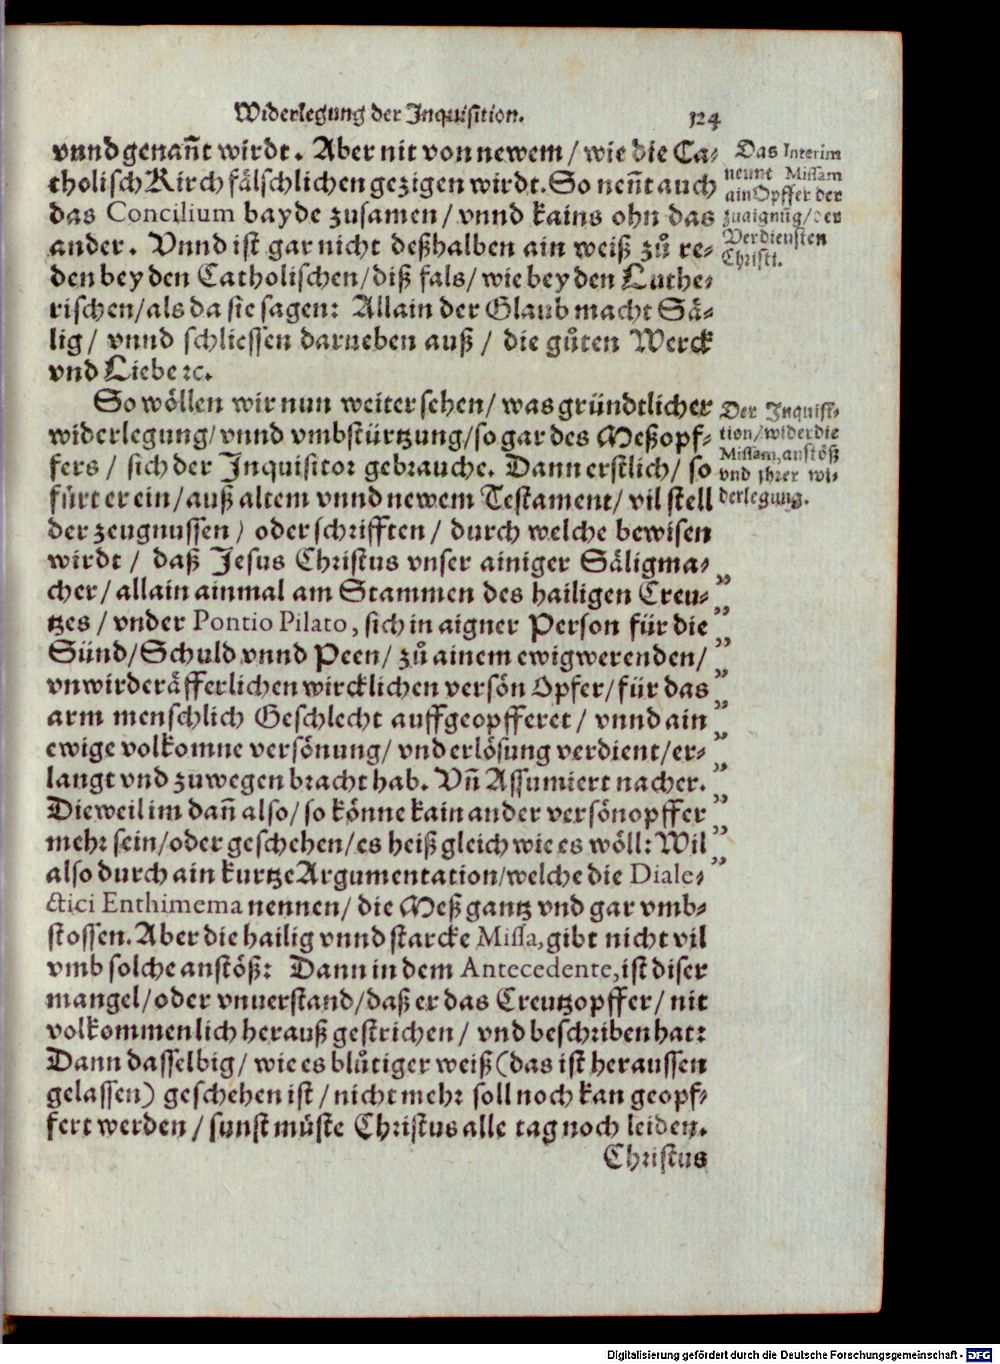 Widerlegung der Inquisition. 124
vnnd genañt wirdt. Aber nit von newem / wie die Ca-
tholisch Kirch fälschlichen gezigen wirdt. So neñt auch
das Concilium bayde zusamen / vnnd kains ohn das
ander. Vnnd ist gar nicht deßhalben ain weiß zů re-
den bey den Catholischen / diß fals / wie bey den Luthe-
rischen / als da sie sagen: Allain der Glaub macht Sä-
lig / vnnd schliessen darneben auß / die gůten Werck
vnd Liebe ꝛc.
Das Interim
nennt Missam
ain Opffer der
zuaignũg / der
Verdiensten
Christi.
So wöllen wir nun weiter sehen / was gründtlicher
widerlegung / vnnd vmbstürtzung / so gar des Meßopf-
fers / sich der Inquisitor gebrauche. Dann erstlich / so
fürt er ein / auß altem vnnd newem Testament / vil stell
der zeugnussen / oder schrifften / durch welche bewisen
wirdt / daß Jesus Christus vnser ainiger Säligma-
cher / allain ainmal am Stammen des hailigen Creu-
tzes / vnder Pontio Pilato, sich in aigner Person für die
Sünd / Schuld vnnd Peen / zů ainem ewigwerenden /
vnwideräfferlichen wircklichen versön Opfer / für das
arm menschlich Geschlecht auffgeopfferet / vnnd ain
ewige volkomne versönung / vnd erlösung verdient / er-
langt vnd zuwegen bracht hab. Vñ Assumiert nacher.
Dieweil im dañ also / so könne kain ander versönopffer
mehr sein / oder geschehen / es heiß gleich wie es wöll: Wil
also durch ain kurtze Argumentation / welche die Diale-
ctici Enthimema nennen / die Meß gantz vnd gar vmb-
stossen. Aber die hailig vnnd starcke Missa, gibt nicht vil
vmb solche anstöß: Dann in dem Antecedente, ist diser
mangel / oder vnuerstand / daß er das Creutzopffer / nit
volkommenlich herauß gestrichen / vnd beschriben hat:
Dann dasselbig / wie es blůtiger weiß (das ist heraussen
gelassen) geschehen ist / nicht mehr soll noch kan geopf-
fert werden / sunst müste Christus alle tag noch leiden.
Christus
Der Inquisi-
tion / wider die
Missam, anstöß
vnd ihrer wi-
derlegung.
Digitalisierung gefördert durch die Deutsche Forschungsgemeinschaft - DFG